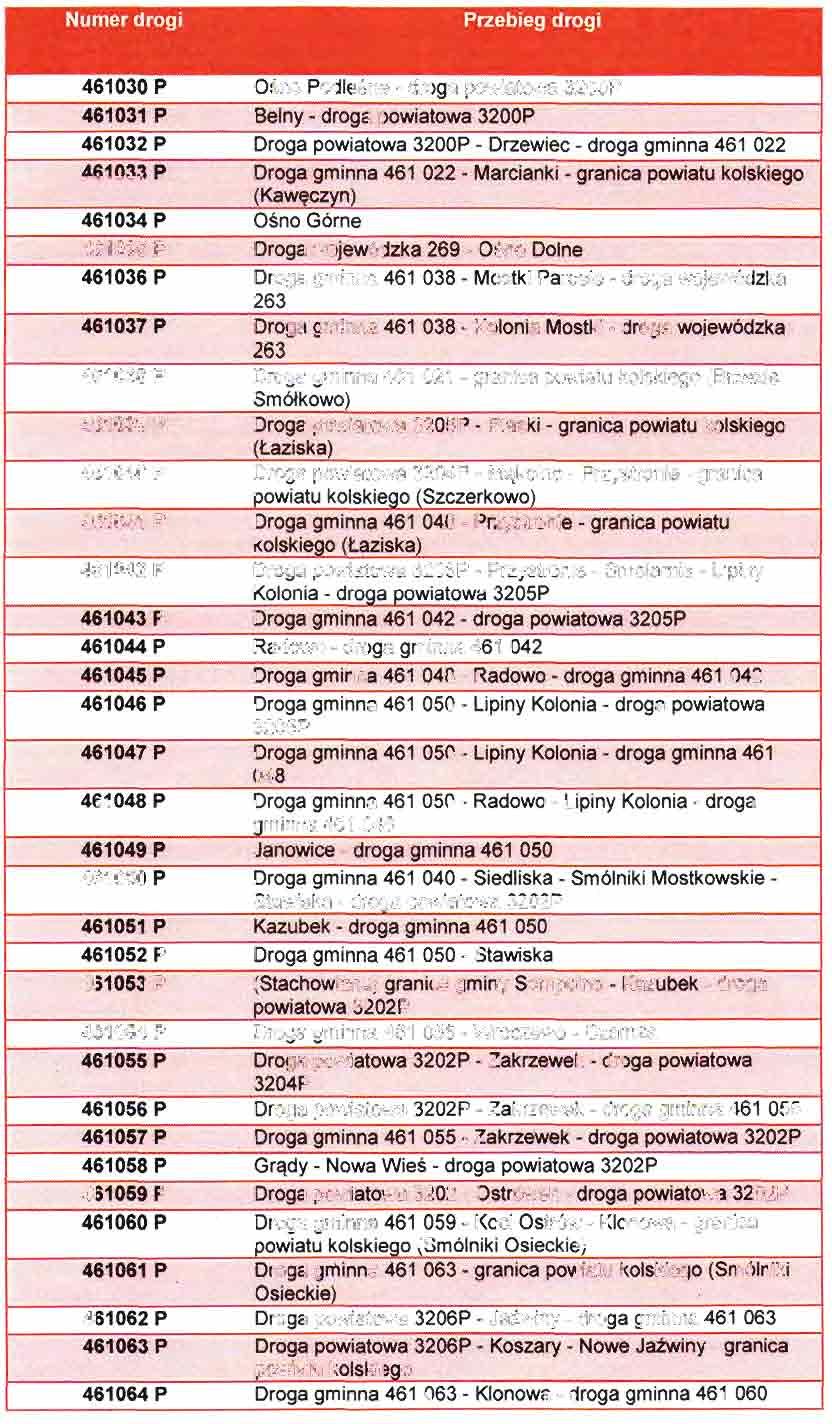 Numer drogi Przebieg drogi
461030 P Ośno Podleśne - droga powiatowa 3200P
461031 P Belny - droga powiatowa 3200P
461032 P Droga powiatowa 3200P - Drzewiec - droga gminna 461 022
461033 P Droga gminna 461 022 - Marcianki - granica powiatu kolskiego
(Kawęczyn)
461034 P Ośno Górne
P Droga wojewódzka 269 - Ośno Dolne
461036 P Droga gminna 461 038 - Mostki Parcele - droga wojewódzka
263
461037 P Droga gminna 461 038 - Kolonia Mostki - droga wojewódzka
263
Droga gminna 461 021 - granica powiatu kolskiego
Smółkowo)
Droga powiatowa 3205P - - granica powiatu kolskiego
(Łaziska)
Droga powiatowa 3204P - - Przystronie - granica
powiatu kolskiego (Szczerkowo)
Droga gminna 461 040 - Przystronie - granica powiatu
kolskiego (Łaziska)
461042 P Droga powiatowa - Przystronie - Smolarnia - Lipiny
Kolonia - droga powiatowa 3205P
461043 P Droga gminna 461 042 - droga powiatowa 3205P
461044 P Radowo - droga gminna 461 042
461045 P Droga gminna 461 040 - Radowo - droga gminna 461 042
461046 P Droga gminna 461 050 - Lipiny Kolonia - droga powiatowa
461047 P Droga gminna 461 050 - Lipiny Kolonia - droga gminna 461
048
461048 P Droga gminna 461 050 - Radowo - Lipiny Kolonia - droga
gminna 461
461049 P Janowice - droga gminna 461 050
461050 P Droga gminna 461 040 - Siedliska - Smólniki Mostkowskie -
Stawiska - droga powiatowa 3202P
461051 P Kazubek - droga gminna 461 050
461052 P Droga gminna 461 050 - Stawiska
461053 P (Stachowizna) granica gminy Sompolno - Kazubek - droga
powiatowa 3202P
461054 P Droga gminna 461
461055 P Droga powiatowa 3202P - Zakrzewek - droga powiatowa
3204P
461056 P Droga powiatowa 3202P - Zakrzewek - droga gminna 461 055
461057 P Droga gminna 461 055 - Zakrzewek - droga powiatowa 3202P
461058 P Grądy - Nowa Wieś - droga powiatowa 3202P
461059 P Droga powiatowa - Ostrówek - droga powiatowa 3202P
461060 P Droga gminna 461 059 - Koci Ostrów - Klonowa - granica
powiatu kolskiego (Smólniki Osieckie)
461061 P Droga gminna 461 063 - granica powiatu kolskiego (Smólniki
Osieckie)
461062 P Droga powiatowa 3206P - Jaźwiny - droga gminna 461 063
461063 P Droga powiatowa 3206P - Koszary - Nowe Jaźwiny - granica
powiatu kolskiego
461064 P Droga gminna 461 063 - Klonowa - droga gminna 461 060